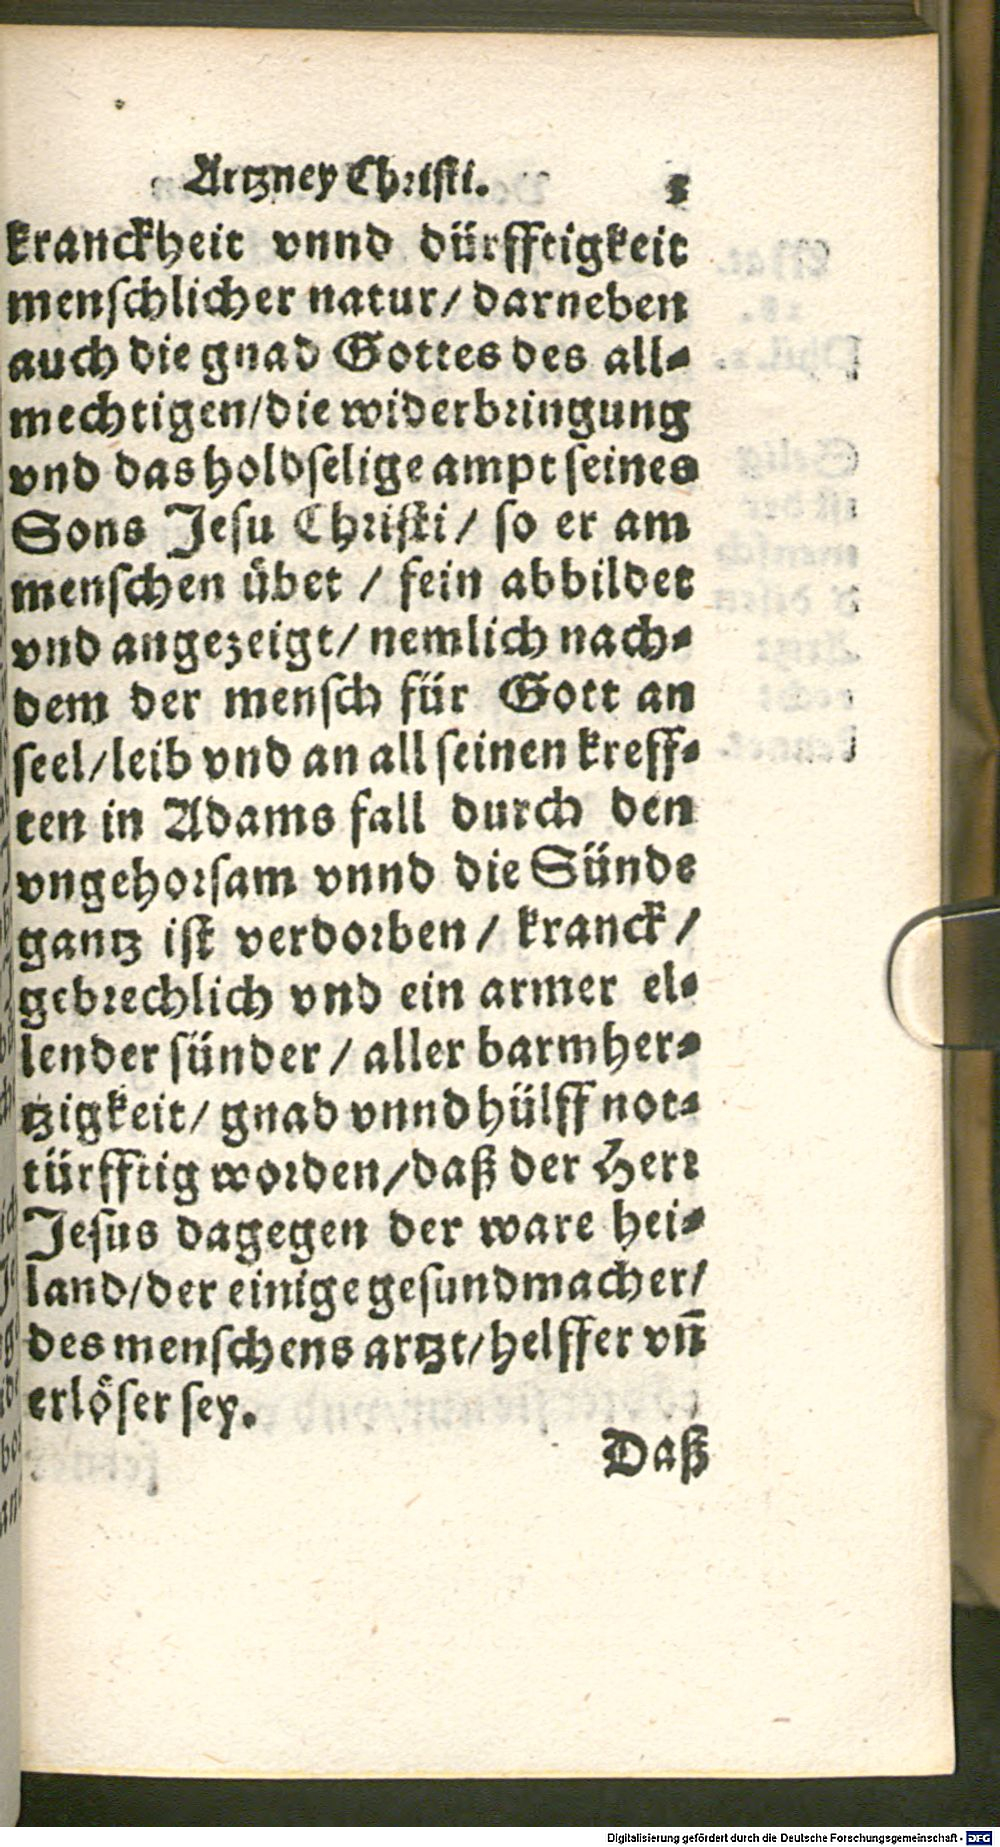 Artzney Christi. 3
kranckheit vnnd dürfftigkeit
menſchlicher natur/ darneben
auch die gnad Gottes des all⸗
mechtigen/die widerbringung
vnd das holdſelige ampt ſeines
Sons Jeſu Chriſti/ ſo er am
menſchen übet / fein abbildet
vnd angezeigt/ nemlich nach⸗
dem der menſch für Gott an
ſeel/leib vnd an all ſeinen kreff⸗
ten in Adams fall durch den
vngehorſam vnnd die Sünde
gantz iſt verdorben/ kranck/
gebrechlich vnd ein armer el⸗
lender ſünder/ aller barmher⸗
tzigkeit/ gnad vnnd hülff not⸗
türfftig worden/daß der Herr
Jeſus dagegen der ware hei⸗
land/der einige geſundmacher/
des menſchens artzt/helffer vn̄
erlöſer ſey.
Daß
Digitalisierung gefördert durch die Deutsche Forschungsgemeinschaft - DFG